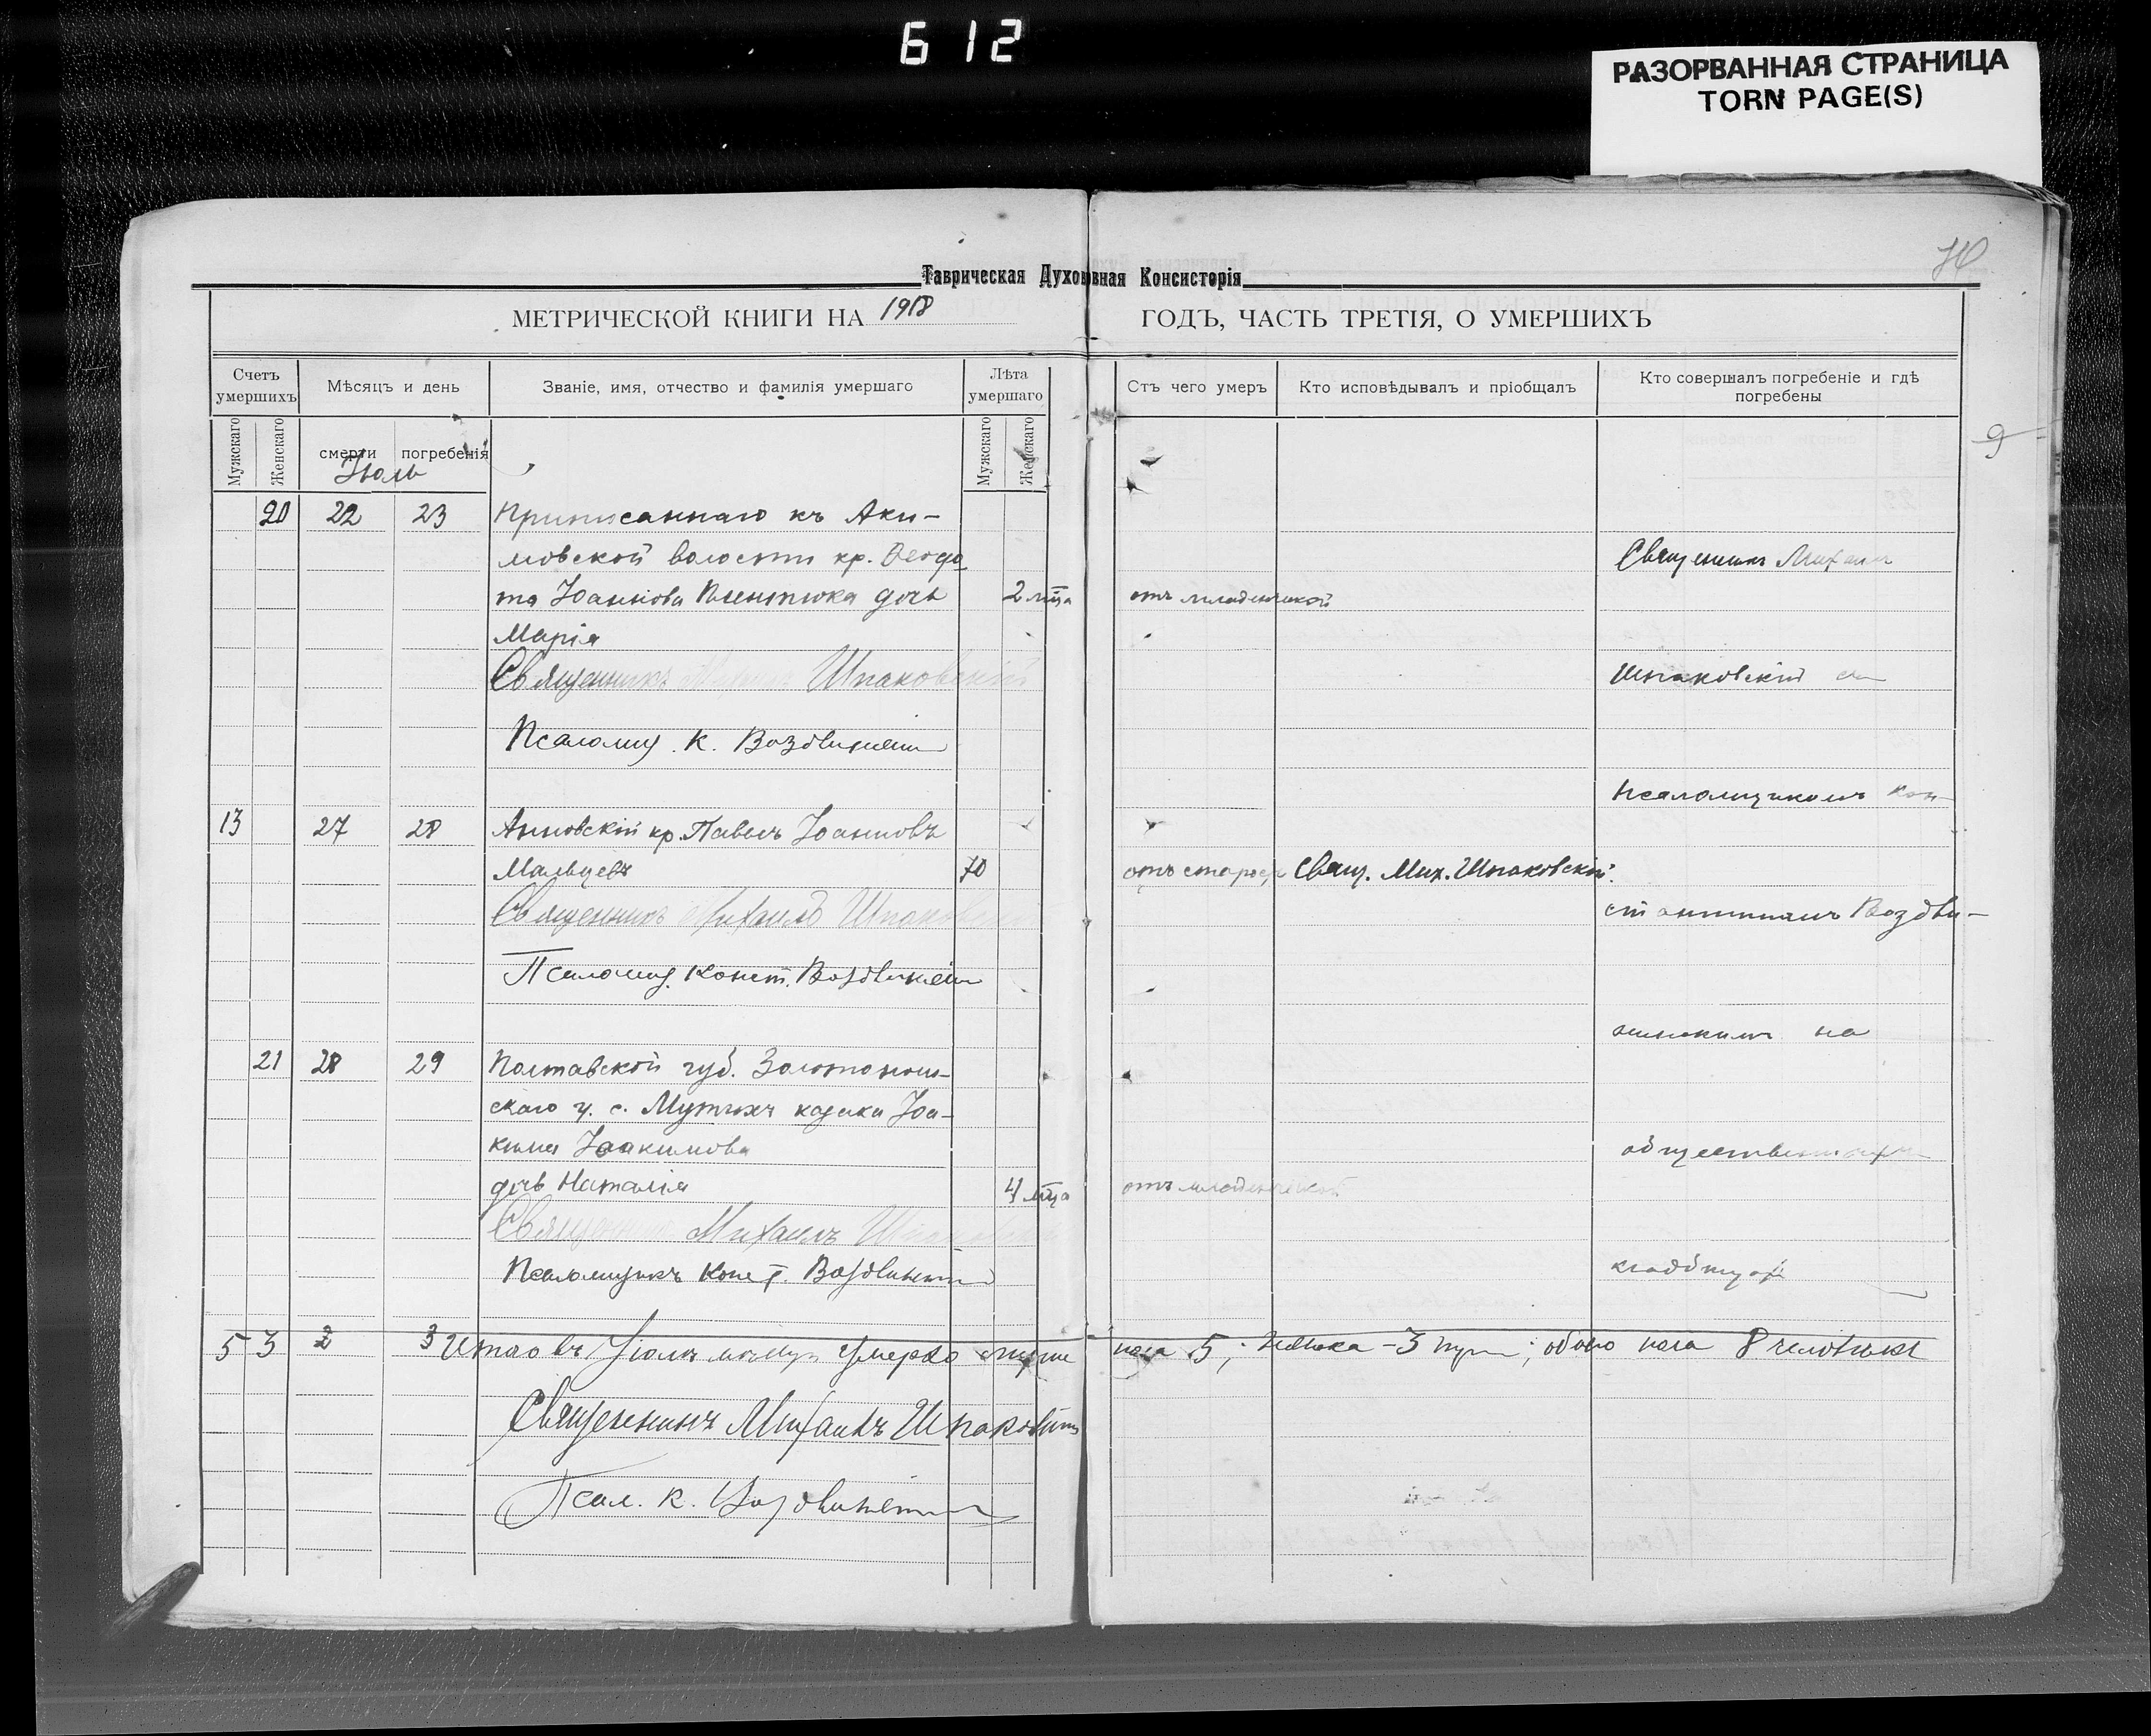 612
РАЗОРВАННАЯ СТРАНИЦА
TORN PAGE(S)
Таврическая Духовная Консисторія
МЕТРИЧЕСКОЙ КНИГИ НА 1918 ГОДЪ, ЧАСТЬ ТРЕТІЯ, О УМЕРШИХЪ
Счетъ умершихъ
Мѣсяцъ и день
Званіе, имя, отчество и фамилія умершаго
Лѣта умершаго
Отъ чего умеръ
Кто исповѣдывалъ и пріобщалъ
Кто совершалъ погребеніе и гдѣ
погребены
Мужскаго
Женскаго
смерти
погребенія
Мужскаго
Женскаго
Июль
9
20 22 23 Приписаннаго къ Аки-
мовской волости кр. Ѳеодо
та Іоаннова дочь 2 мца отъ младенческой
Марія
Священникъ Шпаковскій
Псаломщ. К. Воздвиженскій
13 27 28 Анновскій кр. Павелъ Іоанновъ
Мальцевъ 70 отъ старос. Свящ. Мих. Шпаковскій.
Священникъ Михаилъ Шпаковскій
Псаломщ. Конст. Воздвиженскій
21 28 29 Полтавской губ. Золотонош-
скаго у. с. казака Іоа-
кима Іоакимова
дочь Наталія 4 мца отъ младенческой
Священникъ Михаилъ Шпаковскій
Псаломщикъ Конст. Воздвиженскій
Священникъ Михаилъ
Шпаковскій съ
псаломщикомъ Кон-
стантиномъ Воздви-
женскимъ на
общественномъ
кладбищѣ
5 3 2 3 Итого въ Іюлѣ умерло мужс
пола 5, женска - 3 ; обоего пола 8 человѣкъ
Священникъ Михаилъ Шпаковскій
Псал. К. Воздвиженскій